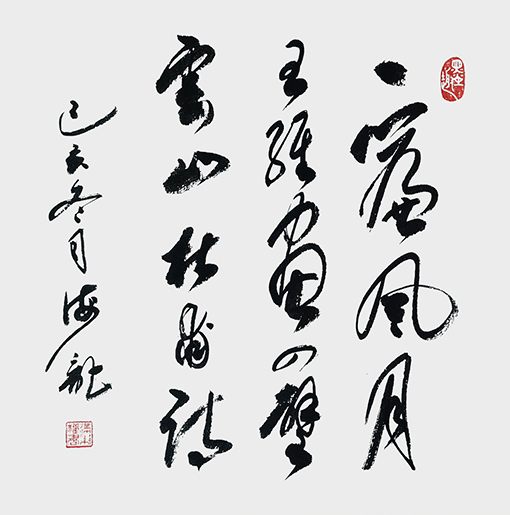 一簾風月
王維畫四壁
雲山杜甫詩
己亥冬月海龍